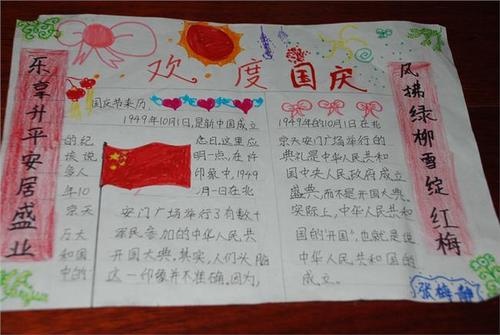 欢度国庆
东享升平安居盛业
风拂绿柳雪绽红梅
国庆节来历
1949年10月1日,是新中国成立
的纪 念日。这里应
该说 明一点,在许
多人 印象中,1949
年10 月一日在北
京天 安门广场举行了有数十
万大 军民参加的中华人民共
和国 开国大典。其实,人们头脑
中的 这一印象并不准确。因为,
1949年的10月1日在北
京天安门广场举行的
典礼是中华人民共和
国中央人民政府成立
盛典,而不是开国大典。
实际上,中华人民共和
国的"开国",也就是说
中华人民共和国的
成立。
张梅静